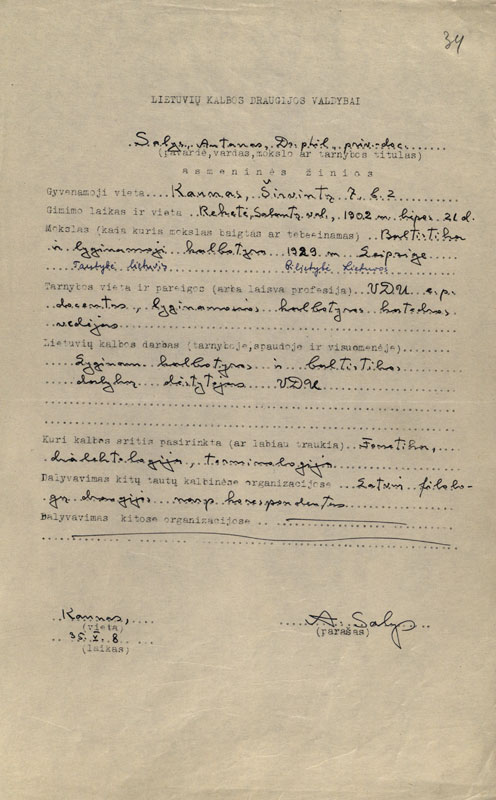 34
LIETUVIŲ KALBOS DRAUGIJOS VALDYBAI
Salys, Antanas, Dr. phil., priv.-doc.
(pavardė, vardas, mokslo ar tarnybos titulas)
asmeninės žinios
Gyvenamoji vieta Kaunas, Širvintų 7, b. 2
Gimimo laikas ir vieta Reketė, Salantų val., 1902 m. liepos 21 d.
Mokslas (kada kuris mokslas baigtas ar tebeeinamas) Baltistika
ir lyginamoji kalbotyra 1929 m Leipzige
Tautybė lietuvis Pilietybė Lietuvos
Tarnybos vieta ir pareigos (arba laisva profesija) VDU e. p.
docentas, lyginamosios kalbotyros katedros
vedėjas
Lietuvių kalbos darbas (tarnyboje, spaudoje ir visuomenėje)
Lyginam. kalbotyros ir baltistikos
dalykų dėstytojas VDU
Kuri kalbos sritis pasirinkta (ar labiau traukia) Fonetika,
dialektologija, terminologija
Dalyvavimas kitų tautų kalbinėse organizacijose Latvių filolo-
gų draugijos narys korespondentas
Dalyvavimas kitose organizacijose
Kaunas,
(vieta)
35. V. 8.
(laikas)
A. Salys
(parašas)